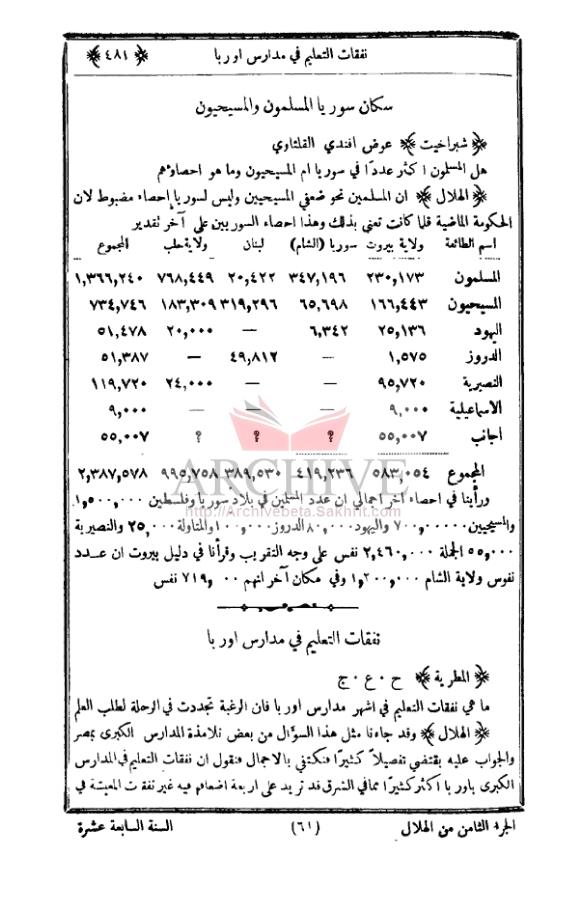 ﴿ ٤٨١ ﴾ نفقات التعليم في مدارس اوربا
سكان سوريا المسلمون والمسيحيون
﴿ شبراخيت ﴾ عوض افندي القلثاوي
هل المسلمون اكثر عددًا في سوريا ام المسيحيون وما هو احصاؤهم
﴿ الهلال ﴾ ان المسلمين نحو ضعفي المسيحيين وليس لسوريا إحصاء مضبوط لان
الحكومة الماضية قلما كانت تعنى بذلك وهذا احصاء السوريين على آخر تقدير
اسم الطائفة ولاية بيروت سوريا (الشام) لبنان ولاية حلب المجموع
المسلمون ٢٣٠,١٧٣ ٣٤٧,١٩٦ ٢٠,٤٢٢ ٧٦٨,٤٤٩ ١,٣٦٦,٢٤٠
المسيحيون ١٦٦,٤٤٣ ٦٥,٦٩٨ ٣١٩,٢٩٦ ١٨٣,٣٠٩ ٧٣٤,٧٤٦
اليهود ٢٥,١٣٦ ٦,٣٤٢ — ٢٠,٠٠٠ ٥١,٤٧٨
الدروز ١,٥٧٥ — ٤٩,٨١٢ — ٥١,٣٨٧
النصيرية ٩٥,٧٢٠ — — ٢٤,٠٠٠ ١١٩,٧٢٠
الاسماعيلية ٩,٠٠٠ — — — ٩,٠٠٠
اجانب ٥٥,٠٠٧ ؟ ؟ ؟ ٥٥,٠٠٧
المجموع ٥٨٣,٠٥٤ ٤١٩,٢٣٦ ٣٨٩,٥٣٠ ٩٩٥,٧٥٨ ٢,٣٨٧,٥٧٨
ARCHIVE
http://Archivebeta.Sakhrit.com
ورأينا في احصاء آخر اجمالي ان عدد المسلمين في بلاد سوريا وفلسطين ١,٥٠٠,٠٠٠
والمسيحيين ٧٠٠,٠٠٠ واليهود ٨٠,٠٠٠ الدروز ١٠٠,٠٠٠ والمتاولة ٢٥,٠٠٠ والنصيرية
٥٥,٠٠٠ الجملة ٢,٤٦٠,٠٠٠ نفس على وجه التقريب وقرأنا في دليل بيروت ان عدد
نفوس ولاية الشام ١,٢٠٠,٠٠٠ وفي مكان آخر انهم ٧١٩, ٠٠ نفس
نفقات التعليم في مدارس اوربا
﴿ المطرية ﴾ ح ٠ ع ٠ ج
ما هي نفقات التعليم في اشهر مدارس اوربا فان الرغبة تجددت في الرحلة لطلب العلم
﴿ الهلال ﴾ وقد جاءنا مثل هذا السؤال من بعض تلامذة المدارس الكبرى بمصر
والجواب عليه يقتضي تفصيلاً كثيرًا فنكتفي بالاجمال فنقول ان نفقات التعليم في المدارس
الكبرى باوربا اكثر كثيرًا مما في الشرق قد تزيد على اربعة اضعافه غير نفقات المعيشة في
الجزء الثامن من الهلال (٦١) السنة السابعة عشرة